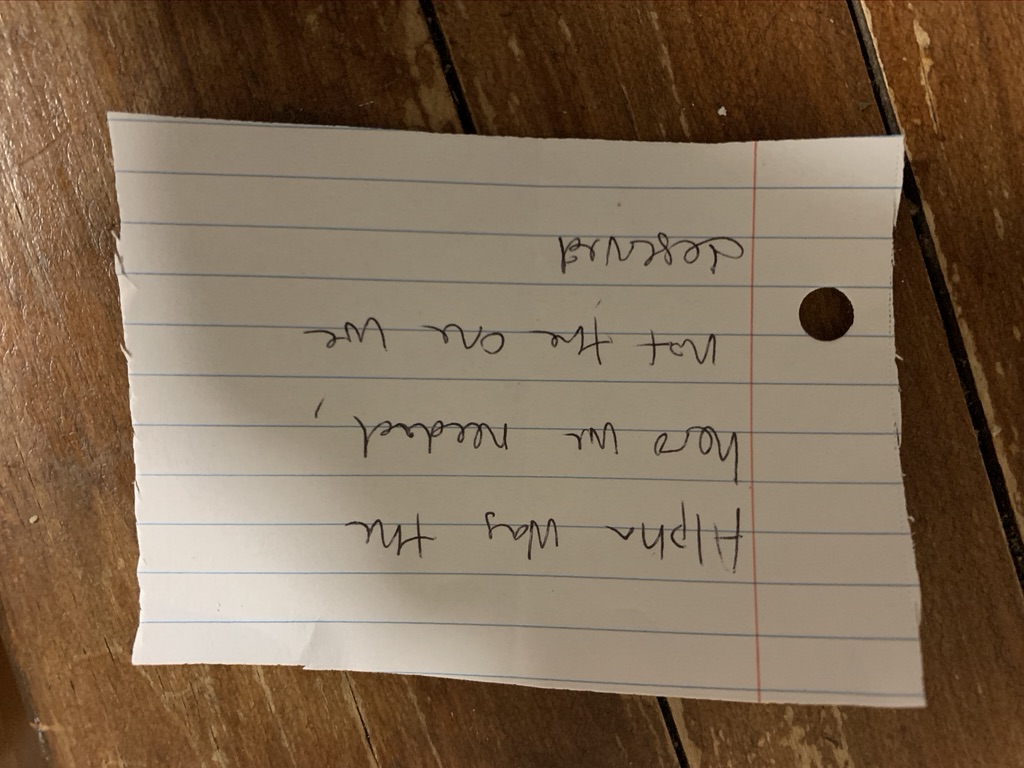 Alpha was the
hero we needed,
not the one we
deserved